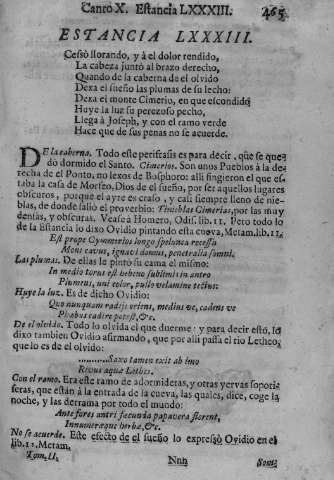 Canto X. Estancia LXXXIII. 465
ESTANCIA LXXXIII.
Cessò llorando, y à el dolor rendido,
La cabeza juntò al brazo derecho,
Quando de la caberna de el olvido
Dexa el sueño las plumas de su lecho:
Dexa el monte Cimerio, en que escondido
Huye la luz su perezoso pecho,
Llega à Joseph, y con el ramo verde
Hace que de sus penas no se acuerde.
DE la caberna. Todo este perifrasis es para decir, que se que-
dò dormido el Santo. Cimerios. Son unos Pueblos à la de-
recha de el Ponto, no lexos de Bosphoro: alli fingieron el que es-
taba la casa de Morfeo, Dios de el sueño, por ser aquellos lugares
obscuros, porque el ayre es craso, y casi siempre lleno de nie-
blas, de donde salio el proverbio: Tinieblas Cimerias, por las muy
densas, y obscuras. Vease à Homero, Odis. lib. 11. Pero todo lo
de la Estancia lo dixo Ovidio pintando esta cueva, Metam. lib. 11.
Est prope Cymmerios longo spelunca recessu
Mons cavus, ignavi domus, penetralia somni.
Las plumas. De ellas le pintò su cama el mismo:
In medio torus est hebeno sublimis in antro
Plumeus, uni color, pullo velamine tectus:
Huye la luz. Es de dicho Ovidio:
Quo nunquam radijs oriens, mediusve, cadensve
Phœbus cadire potest, &c.
De el olvido. Todo lo olvida el que duerme: y para decir esto, lo
dixo tambien Ovidio afirmando, que por alli passa el rio Letheo,
que lo es de el olvido:
........Saxo tamen exit ab imo
Rivus aquæ Lethes.
Con el ramo. Era este ramo de adormideras, y otras yervas soporife
feras, que estàn à la entrada de la cueva, las quales, dice, coge la
noche, y las derrama por todo el mundo:
Ante fores antri fœcunda papavera florent,
Innumeræque herbæ, &c.
No se acuerde. Este efecto de el sueño lo expressò Ovidio en el
lib. 11. Metam.
Tom. II. Nnn